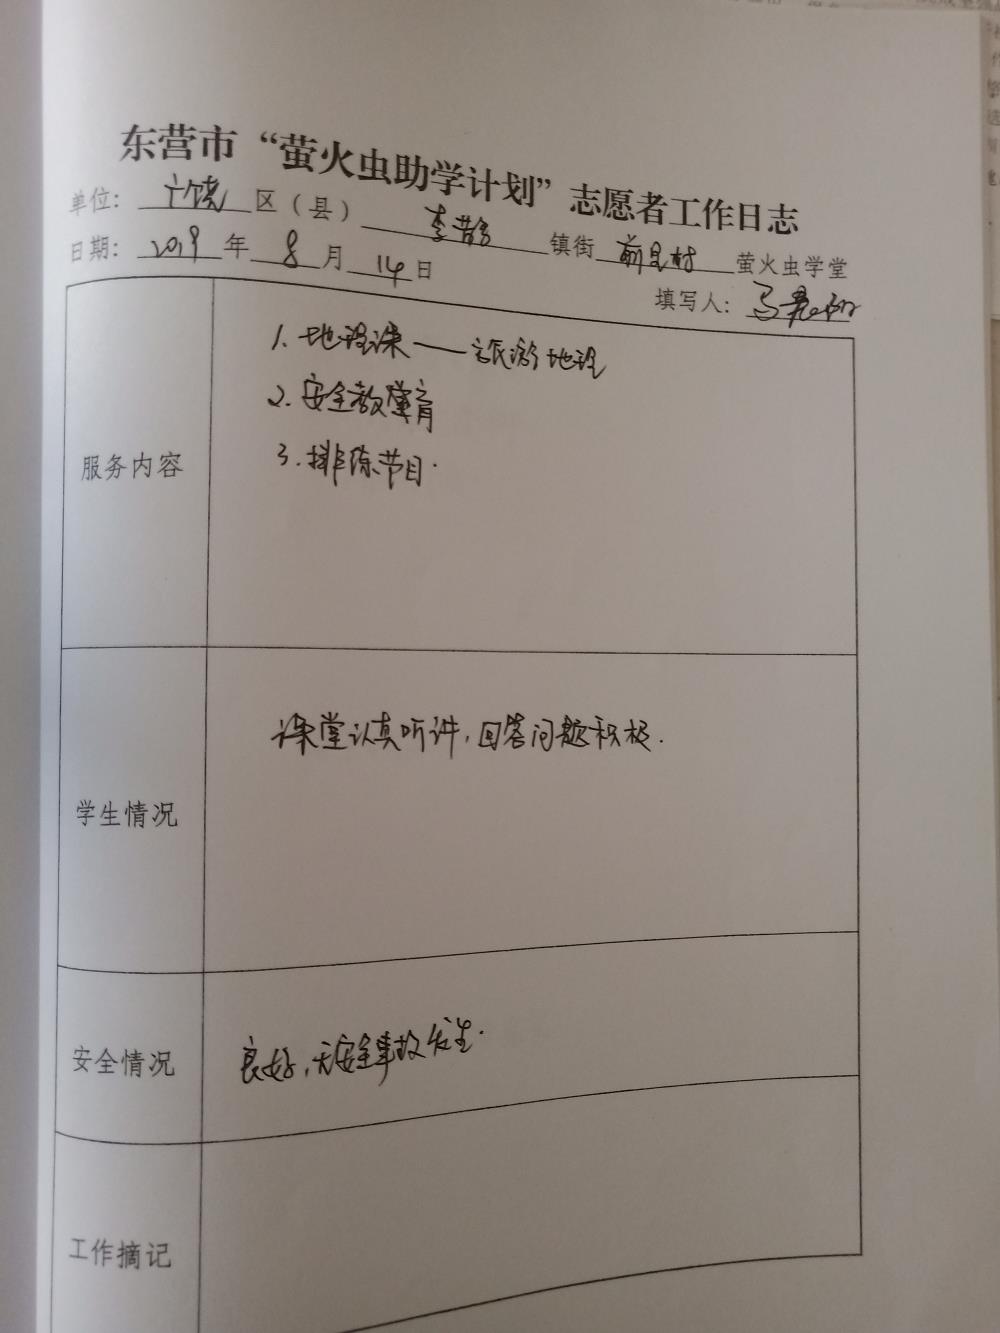 东营市“萤火虫助学计划”志愿者工作日志
单位：广饶区（县）李鹊镇街 萤火虫学堂
日期：2019年8月14日
填写人：马
服务内容
1. 地理课——旅游地理
2. 安全教育
3. 排练节目.
学生情况
课堂认真听讲，回答问题积极.
安全情况
良好，无安全事故发生.
工作摘记